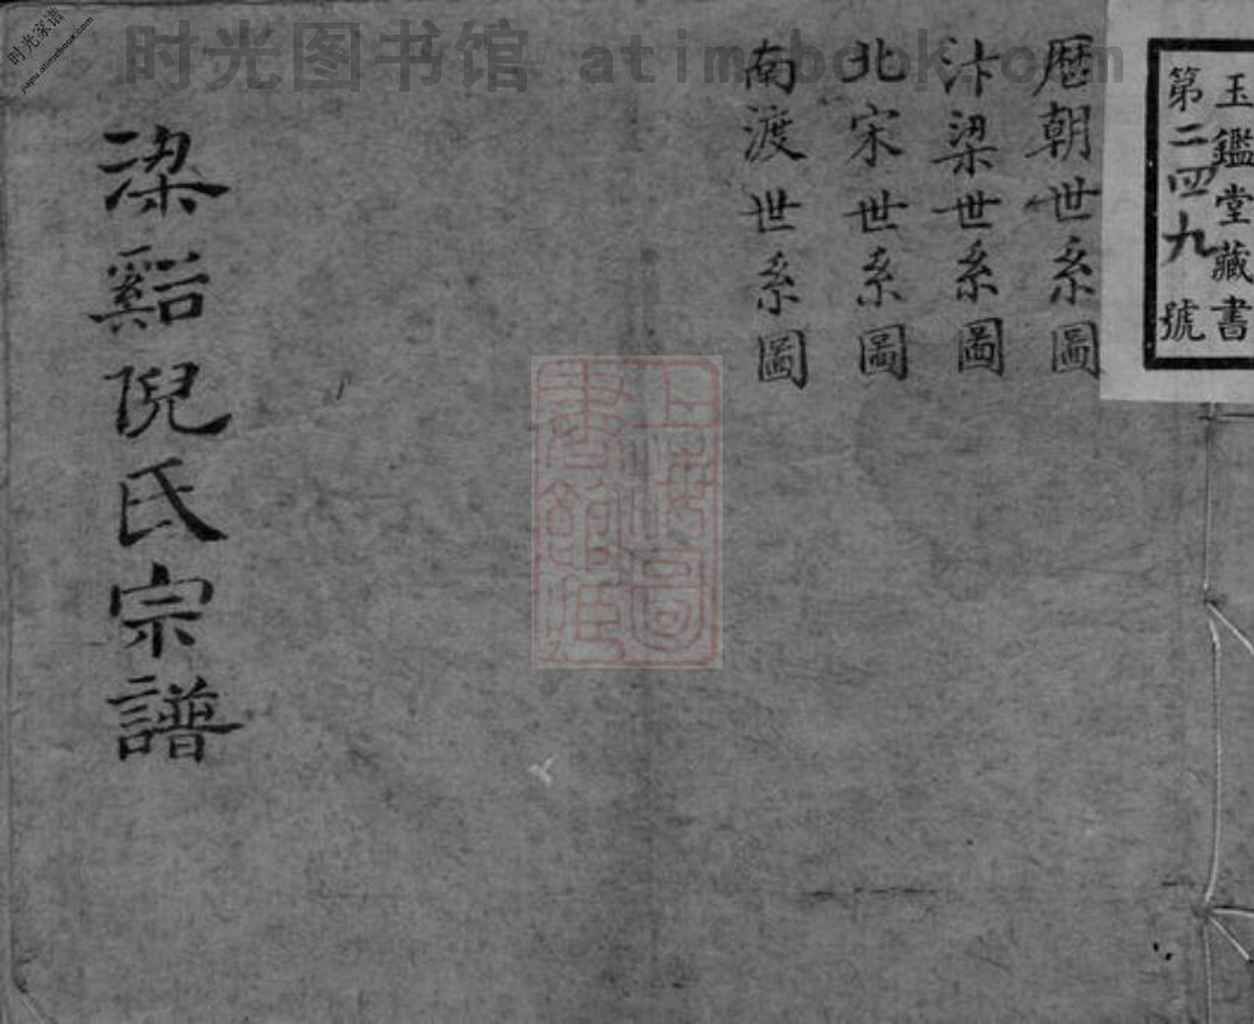 玉鑑堂藏書
第二四九號
歷朝世系圖
汴梁世系圖
北宋世系圖
南渡世系圖
梁谿倪氏宗譜
时光图书馆 atimebook.com
时光家谱
jiapu.atimebook.com